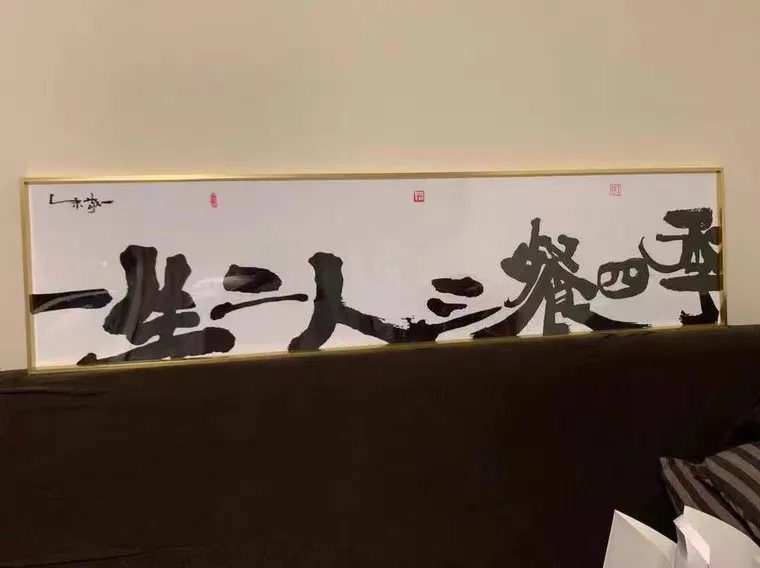 一生二人三餐四季